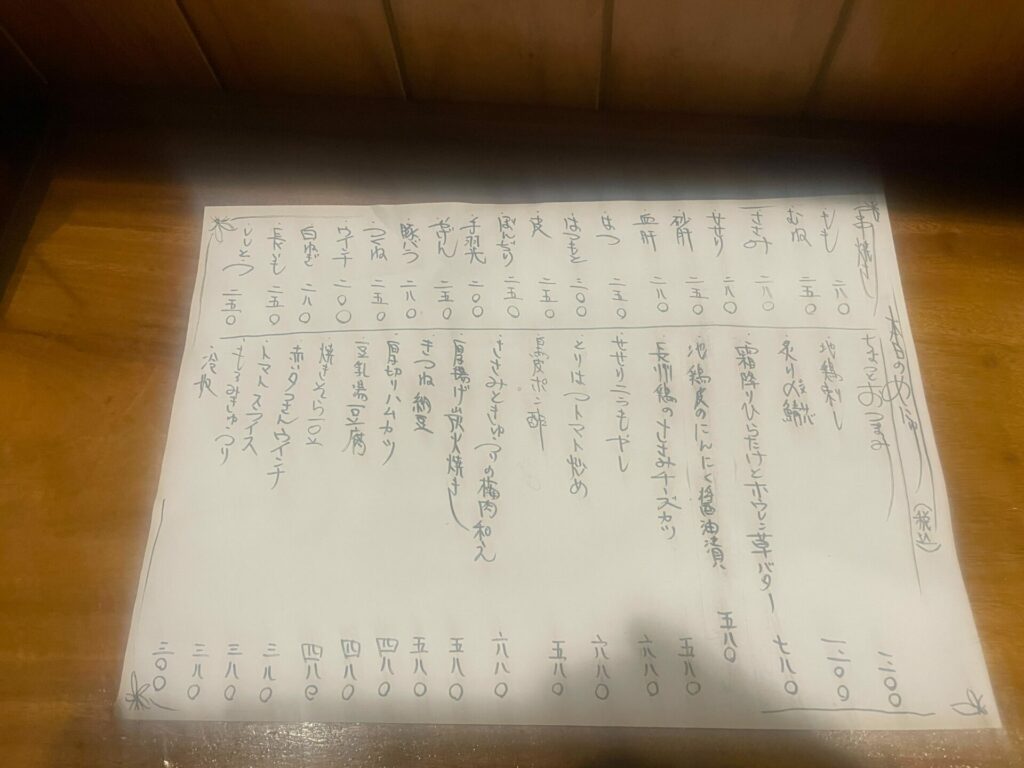 本日のめにゅー(税込)
串焼き
もも 二八〇
むね 二五〇
ささみ 二八〇
せせり 二八〇
砂肝 二五〇
血肝 二八〇
はつ 二五〇
はつもと 二〇〇
皮 二五〇
ぼんぢり 二五〇
手羽先 二〇〇
二五〇
豚バラ 二八〇
つくね 二五〇
ウインナー 二〇〇
白ねぎ 二八〇
長いも 二五〇
ししとう 二五〇
おつまみ
地鶏刺し 一二〇〇
炙り〆鯖
霜降りひらたけとホウレン草バター 七八〇
地鶏皮のにんにく醤油漬 五八〇
長州鶏のささみチーズカツ 五八〇
せせりニラもやし 六八〇
とりはつトマト炒め 六八〇
鶏皮ポン酢 五八〇
ささみときゅうりの梅肉和え 六八〇
厚揚げ炭火焼き 五八〇
きつね納豆 五八〇
厚切りハムカツ 四八〇
豆乳湯豆腐 四八〇
焼きそら豆 四八〇
赤いタコさんウインナー 三八〇
トマトスライス 三八〇
もろみきゅうり 三八〇
冷奴 三〇〇